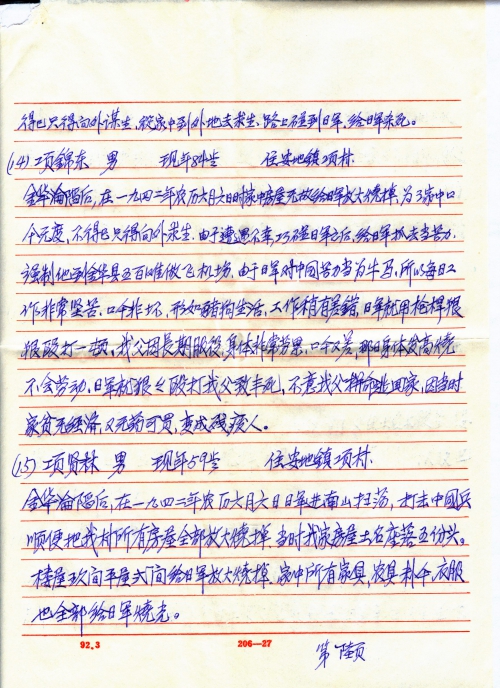 得已只得向外谋生,從家中到外地去求生.路上碰到日军,给日军杀死。
(14) 项錦东 男 现年84岁 住安地鎮项村.
金华淪陷后,在一九四二年农历六月六日时家中房屋无故给日军放火燒掉,为了家中口
令无度,不得已只得向外求生.由于遭遇不幸,巧碰日军之后,给日军抓去当劳力.
强制他到金华县五百滩做飞机場.由于日军对中國劳力当为牛马,所以每日工
作非常坚苦.口令非坏,形如猪狗生活,工作稍有差錯,日军就用枪桿狠
狠毆打一顿,我父因長期服役,身体非常劳累.口令又差,那日身体发高燒
不会劳动,日军就狠々毆打我父致半死,不意我父拼命逃回家,因当时
家贫无经济,又无药可買,变成残疾人。
(15) 项贤林 男 现年59岁 住安地鎮项村.
金华淪陷后,在一九四二年农历六月六日日军进南山扫荡,打击中國兵
顺便把我村所有房屋全部放火燒掉.当时我家房屋土名座落五份头。
楼屋玖间平屋弍间给日军放火燒掉.家中所有家具,农具 衣服
也全部给日军燒光。
92.3 206—27
第 页